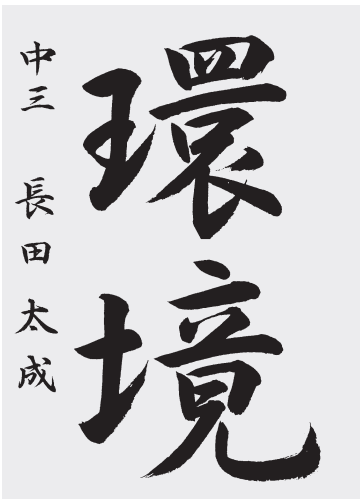 環境
中三 長田太成